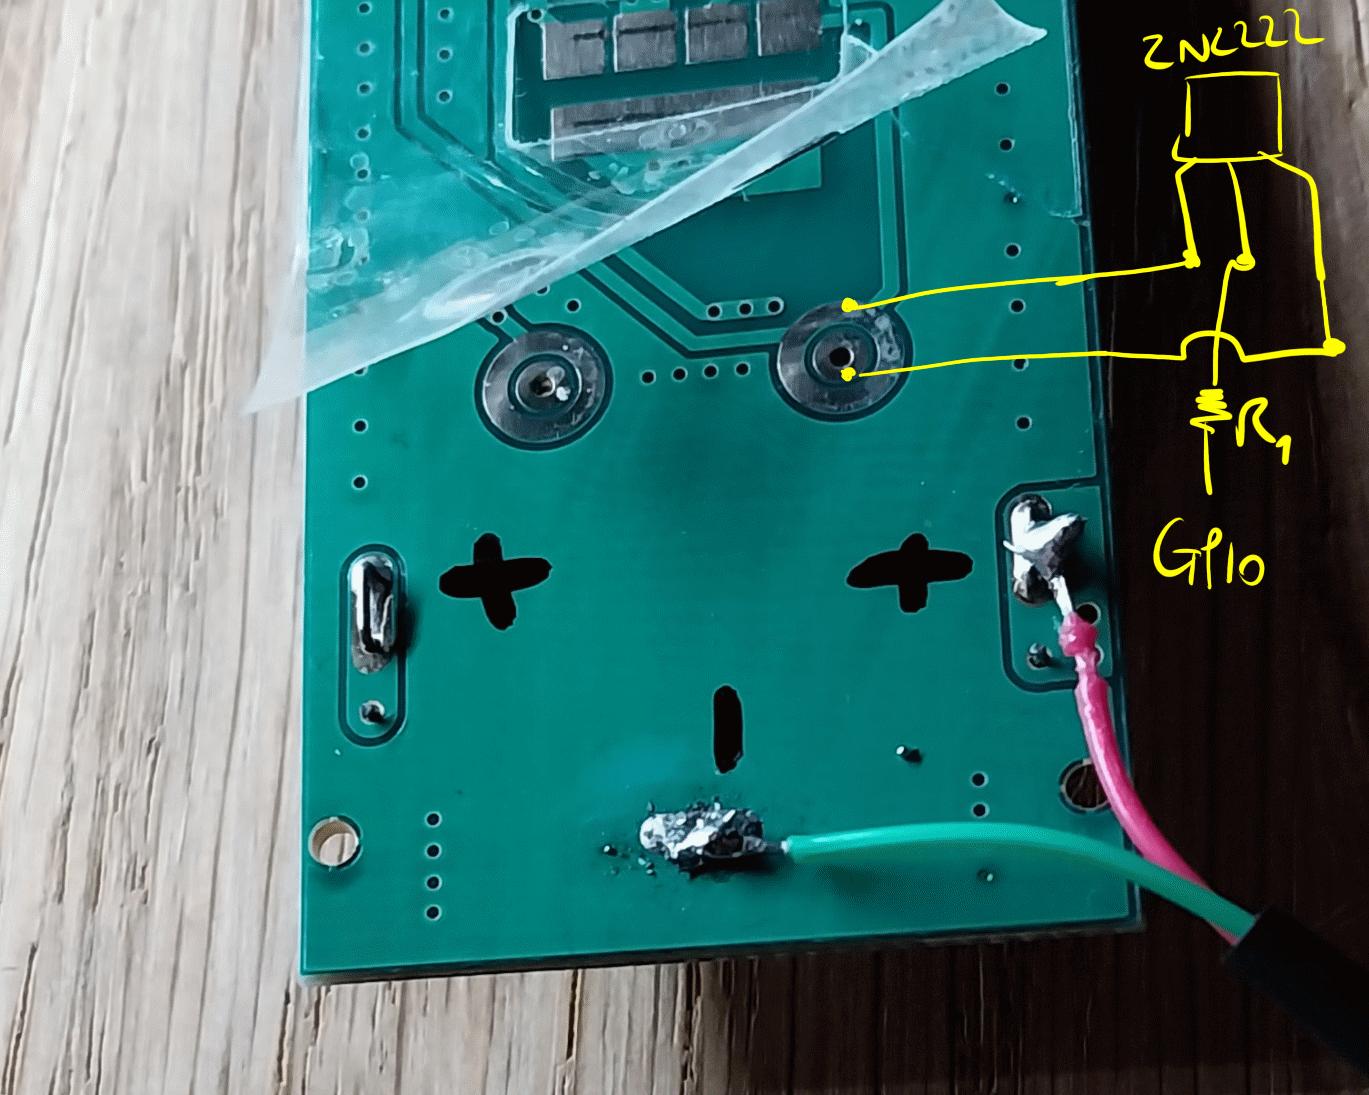 2NC222
R1
GPIO
+ +
-